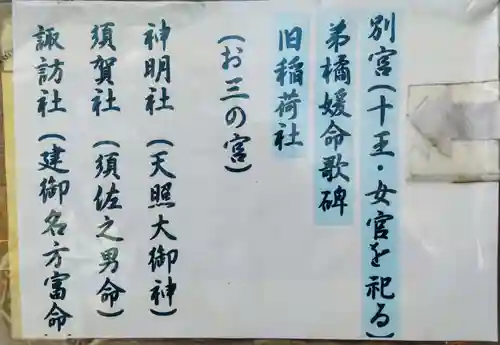 別宮(十王・女官を祀る)
弟橘媛命歌碑
旧稲荷社
(お三の宮)
神明社(天照大御神)
須賀社(須佐之男命)
諏訪社(建御名方富命)